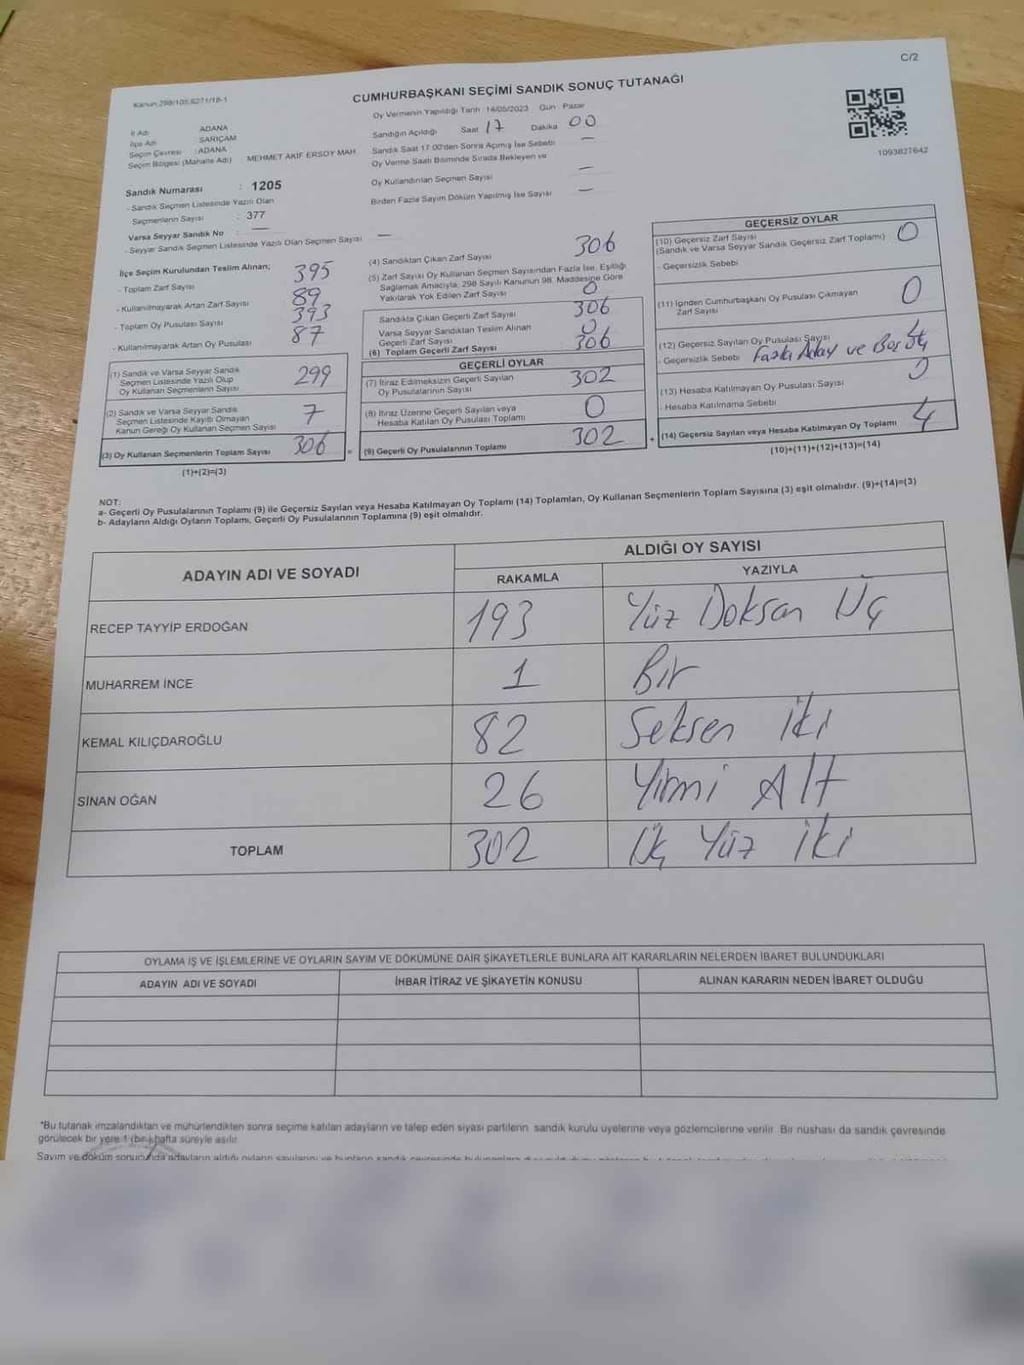 C/2
Kanun 298/105,6271/18-1
CUMHURBAŞKANI SEÇİMİ SANDIK SONUÇ TUTANAĞI
İl Adı : ADANA
İlçe Adı : SARIÇAM
Seçim Çevresi : ADANA
Seçim Bölgesi (Mahalle Adı) : MEHMET AKİF ERSOY MAH.
Sandık Numarası : 1205
- Sandık Seçmen Listesinde Yazılı Olan
Seçmenlerin Sayısı : 377
Varsa Seyyar Sandık No : —
- Seyyar Sandık Seçmen Listesinde Yazılı Olan Seçmen Sayısı —
Oy Vermenin Yapıldığı Tarih 14/05/2023 Gün Pazar
Sandığın Açıldığı Saat 17 Dakika 00
Sandık Saat 17:00'den Sonra Açılmış İse Sebebi —
Oy Verme Saati Bitiminde Sırada Bekleyen ve
Oy Kullandırılan Seçmen Sayısı —
Birden Fazla Sayım Döküm Yapılmış İse Sayısı —
1093827642
İlçe Seçim Kurulundan Teslim Alınan;
- Toplam Zarf Sayısı 395
- Kullanılmayarak Artan Zarf Sayısı 89
- Toplam Oy Pusulası Sayısı 393
- Kullanılmayarak Artan Oy Pusulası 87
(1) Sandık ve Varsa Seyyar Sandık
Seçmen Listesinde Yazılı Olup
Oy Kullanan Seçmenlerin Sayısı 299
(2) Sandık ve Varsa Seyyar Sandık
Seçmen Listesinde Kaydı Olmayan
Kanun Gereği Oy Kullanan Seçmen Sayısı 7
(3) Oy Kullanan Seçmenlerin Toplam Sayısı 306 =
(1)+(2)=(3)
(4) Sandıktan Çıkan Zarf Sayısı 306
(5) Zarf Sayısı Oy Kullanan Seçmen Sayısından Fazla İse, Eşitliği
Sağlamak Amacıyla; 298 Sayılı Kanunun 98. Maddesine Göre
Yakılarak Yok Edilen Zarf Sayısı 0
Sandıkta Çıkan Geçerli Zarf Sayısı 306
Varsa Seyyar Sandıktan Teslim Alınan
Geçerli Zarf Sayısı 0
(6) Toplam Geçerli Zarf Sayısı 306
GEÇERLİ OYLAR
(7) İtiraz Edilmeksizin Geçerli Sayılan
Oy Pusulalarının Sayısı 302
(8) İtiraz Üzerine Geçerli Sayılan veya
Hesaba Katılan Oy Pusulası Toplamı 0
(9) Geçerli Oy Pusulalarının Toplamı 302 +
GEÇERSİZ OYLAR
(10) Geçersiz Zarf Sayısı 0
(Sandık ve Varsa Seyyar Sandık Geçersiz Zarf Toplamı)
- Geçersizlik Sebebi
(11) İçinden Cumhurbaşkanı Oy Pusulası Çıkmayan
Zarf Sayısı 0
(12) Geçersiz Sayılan Oy Pusulası Sayısı 4
- Geçersizlik Sebebi Fazla Aday ve Boş
(13) Hesaba Katılmayan Oy Pusulası Sayısı 0
- Hesaba Katılmama Sebebi
(14) Geçersiz Sayılan veya Hesaba Katılmayan Oy Toplamı 4
(10)+(11)+(12)+(13)=(14)
NOT:
a- Geçerli Oy Pusulalarının Toplamı (9) ile Geçersiz Sayılan veya Hesaba Katılmayan Oy Toplamı (14) Toplamları, Oy Kullanan Seçmenlerin Toplam Sayısına (3) eşit olmalıdır. (9)+(14)=(3)
b- Adayların Aldığı Oyların Toplamı, Geçerli Oy Pusulalarının Toplamına (9) eşit olmalıdır.
ADAYIN ADI VE SOYADI
ALDIĞI OY SAYISI
RAKAMLA YAZIYLA
RECEP TAYYİP ERDOĞAN 193 Yüz Doksan Üç
MUHARREM İNCE 1 Bir
KEMAL KILIÇDAROĞLU 82 Seksen İki
SİNAN OĞAN 26 Yirmi Altı
TOPLAM 302 Üç Yüz İki
OYLAMA İŞ VE İŞLEMLERİNE VE OYLARIN SAYIM VE DÖKÜMÜNE DAİR ŞİKAYETLERLE BUNLARA AİT KARARLARIN NELERDEN İBARET BULUNDUKLARI
ADAYIN ADI VE SOYADI İHBAR İTİRAZ VE ŞİKAYETİN KONUSU ALINAN KARARIN NEDEN İBARET OLDUĞU
*Bu tutanak imzalandıktan ve mühürlendikten sonra seçime katılan adayların ve talep eden siyasi partilerin sandık kurulu üyelerine veya gözlemcilerine verilir. Bir nüshası da sandık çevresinde
görülecek bir yere 1 (bir) hafta süreyle asılır.
Sayım ve döküm sonucunda adayların aldığı oyların sayılarını ve bunların sandık çevresinde